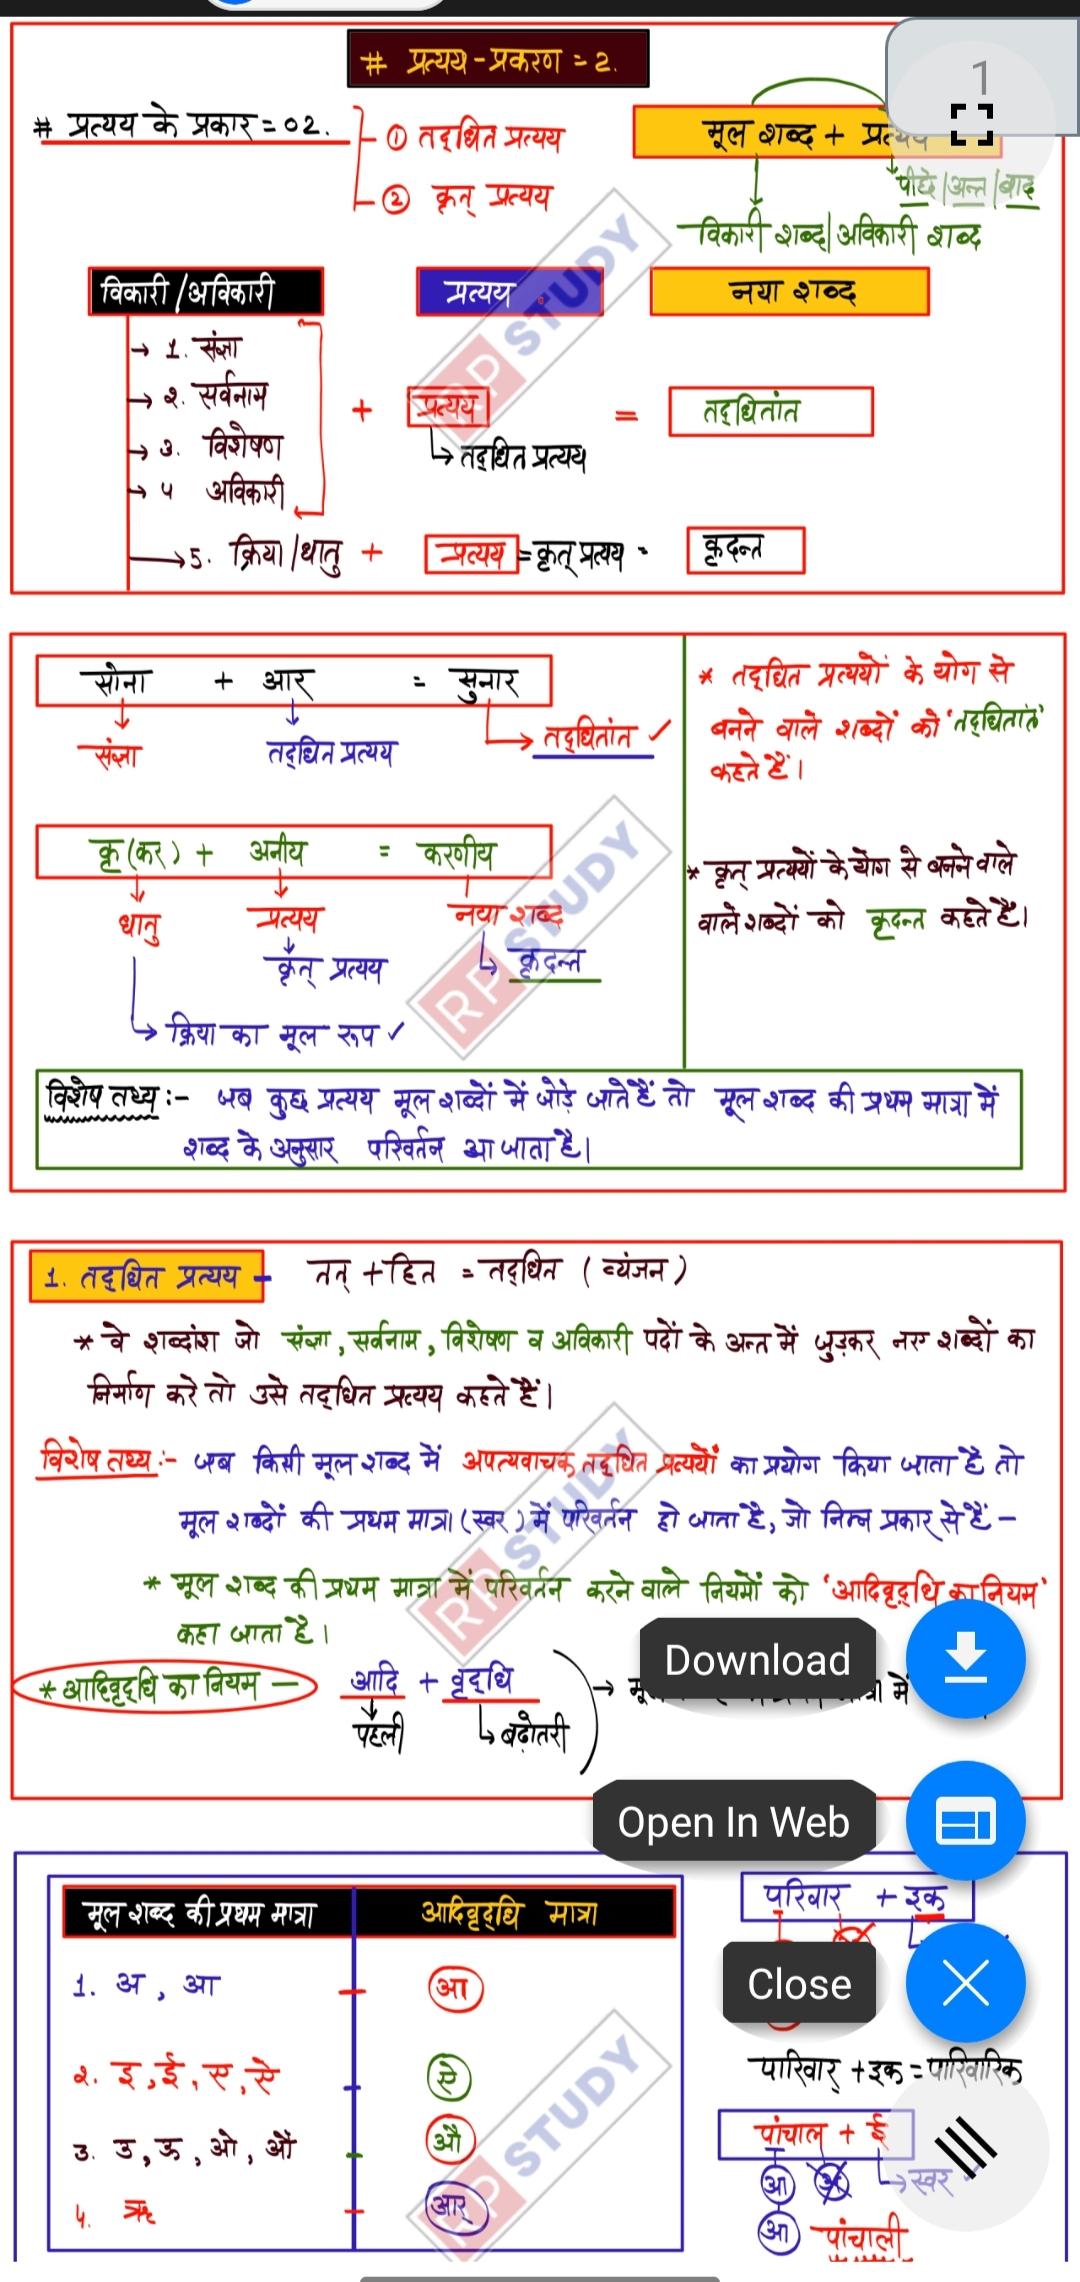 1
# प्रत्यय-प्रकरण = 2.
# प्रत्यय के प्रकार = 02.
① तद्धित प्रत्यय
② कृत् प्रत्यय
मूल शब्द + प्रत्यय
पीछे/अन्त/बाद
विकारी शब्द/अविकारी शब्द
विकारी/अविकारी प्रत्यय नया शब्द
→ 1. संज्ञा
→ २. सर्वनाम
→ 3. विशेषण
→ ५ अविकारी
+ प्रत्यय = तद्धितांत
↳ तद्धित प्रत्यय
→ 5. क्रिया/धातु + प्रत्यय = कृत् प्रत्यय - कृदन्त
सोना + आर = सुनार
संज्ञा तद्धित प्रत्यय → तद्धितांत ✓
* तद्धित प्रत्ययों के योग से
बनने वाले शब्दों को 'तद्धितांत'
कहते हैं।
कृ (कर) + अनीय = करणीय
धातु प्रत्यय नया शब्द
कृत् प्रत्यय ↳ कृदन्त
↳ क्रिया का मूल रूप ✓
* कृत् प्रत्ययों के योग से बनने वाले
वाले शब्दों को कृदन्त कहते हैं।
विशेष तथ्य :- जब कुछ प्रत्यय मूल शब्दों में जोड़े जाते हैं तो मूल शब्द की प्रथम मात्रा में
शब्द के अनुसार परिवर्तन आ जाता है।
1. तद्धित प्रत्यय - तत् + हित = तद्धित (व्यंजन)
* वे शब्दांश जो संज्ञा, सर्वनाम, विशेषण व अविकारी पदों के अन्त में जुड़कर नए शब्दों का
निर्माण करे तो उसे तद्धित प्रत्यय कहते हैं।
विशेष तथ्य :- जब किसी मूल शब्द में अपत्यवाचक तद्धित प्रत्ययों का प्रयोग किया जाता है तो
मूल शब्दों की प्रथम मात्रा (स्वर) में परिवर्तन हो जाता है, जो निम्न प्रकार से हैं -
* मूल शब्द की प्रथम मात्रा में परिवर्तन करने वाले नियमों को 'आदिवृद्धि का नियम'
कहा जाता है।
* आदिवृद्धि का नियम — आदि + वृद्धि → में
पहली ↳ बढ़ोतरी
Download
Open In Web
Close
मूल शब्द की प्रथम मात्रा आदिवृद्धि मात्रा
1. अ, आ - आ
२. इ, ई, ए, ऐ - ऐ
3. उ, ऊ, ओ, औ - औ
५. ऋ - आर्
परिवार + इक
पारिवार् + इक = पारिवारिक
पांचाल + ई
आ अ → स्वर
आ पांचाली
RP STUDY
RP STUDY
RP STUDY
RP STUDY